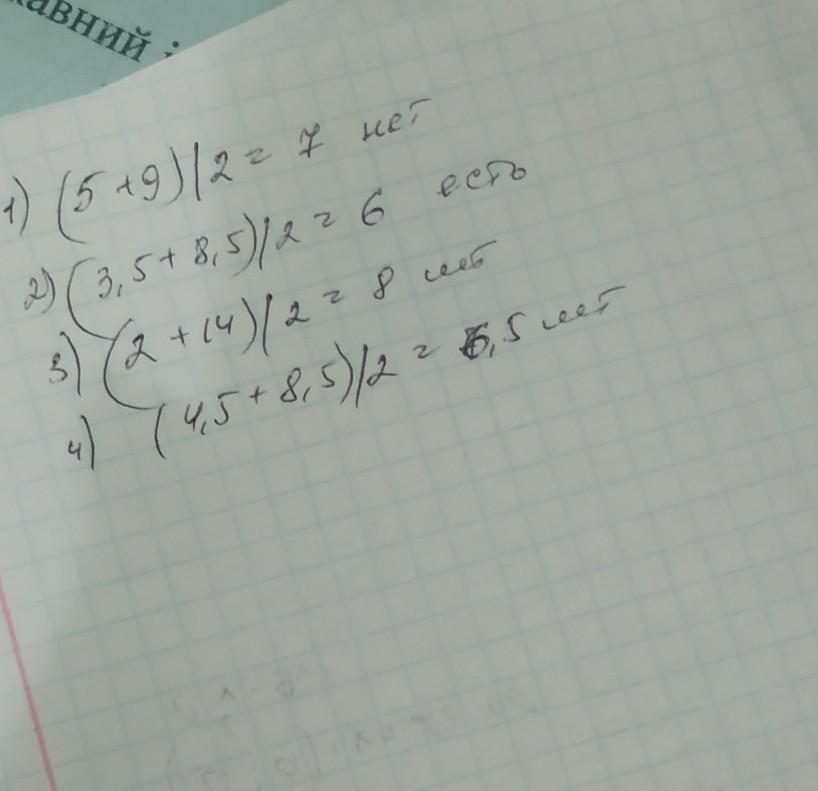 авний і
1) (5+9)|2 = 7 нет
2) (3,5+8,5)|2 = 6 есть
3) (2+14)|2 = 8 нет
4) (4,5+8,5)|2 = 6,5 нет